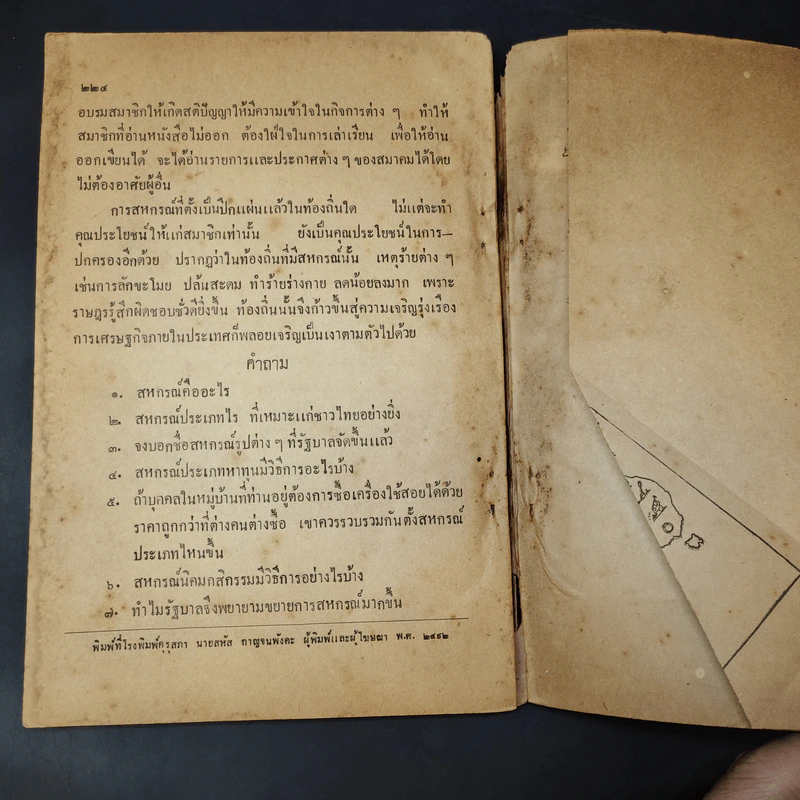 ๒๒๔
อบรมสมาชิกให้เกิดสติปัญญาให้มีความเข้าใจในกิจการต่าง ๆ ทำให้
สมาชิกที่อ่านหนังสือไม่ออก ต้องใฝ่ใจในการเล่าเรียน เพื่อให้อ่าน
ออกเขียนได้ จะได้อ่านรายการและประกาศต่าง ๆ ของสมาคมได้โดย
ไม่ต้องอาศัยผู้อื่น
การสหกรณ์ที่ตั้งเป็นปึกแผ่นแล้วในท้องถิ่นใด ไม่แต่จะทำ
คุณประโยชน์ให้แก่สมาชิกเท่านั้น ยังเป็นคุณประโยชน์ในการ—
ปกครองอีกด้วย ปรากฏว่าในท้องถิ่นที่มีสหกรณ์นั้น เหตุร้ายต่าง ๆ
เช่นการลักขะโมย ปล้นสะดม ทำร้ายร่างกาย ลดน้อยลงมาก เพราะ
ราษฎรรู้สึกผิดชอบชั่วดียิ่งขึ้น ท้องถิ่นนั้นจึงก้าวขึ้นสู่ความเจริญรุ่งเรือง
การเศรษฐกิจภายในประเทศก็พลอยเจริญเป็นเงาตามตัวไปด้วย
คำถาม
๑. สหกรณ์คืออะไร
๒. สหกรณ์ประเภทไร ที่เหมาะแก่ชาวไทยอย่างยิ่ง
๓. จงบอกชื่อสหกรณ์รูปต่าง ๆ ที่รัฐบาลจัดขึ้นแล้ว
๔. สหกรณ์ประเภทหาทุนมีวิธีการอะไรบ้าง
๕. ถ้าบุคคลในหมู่บ้านที่ท่านอยู่ต้องการซื้อเครื่องใช้สอยได้ด้วย
ราคาถูกกว่าที่ต่างคนต่างซื้อ เขาควรรวบรวมกันตั้งสหกรณ์
ประเภทไหนขึ้น
๖. สหกรณ์นิคมกสิกรรมมีวิธีการอย่างไรบ้าง
๗. ทำไมรัฐบาลจึงพยายามขยายการสหกรณ์มากขึ้น
พิมพ์ที่โรงพิมพ์คุรุสภา นายสหัส กาญจนพังคะ ผู้พิมพ์และผู้โฆษณา พ.ศ. ๒๔๙๒